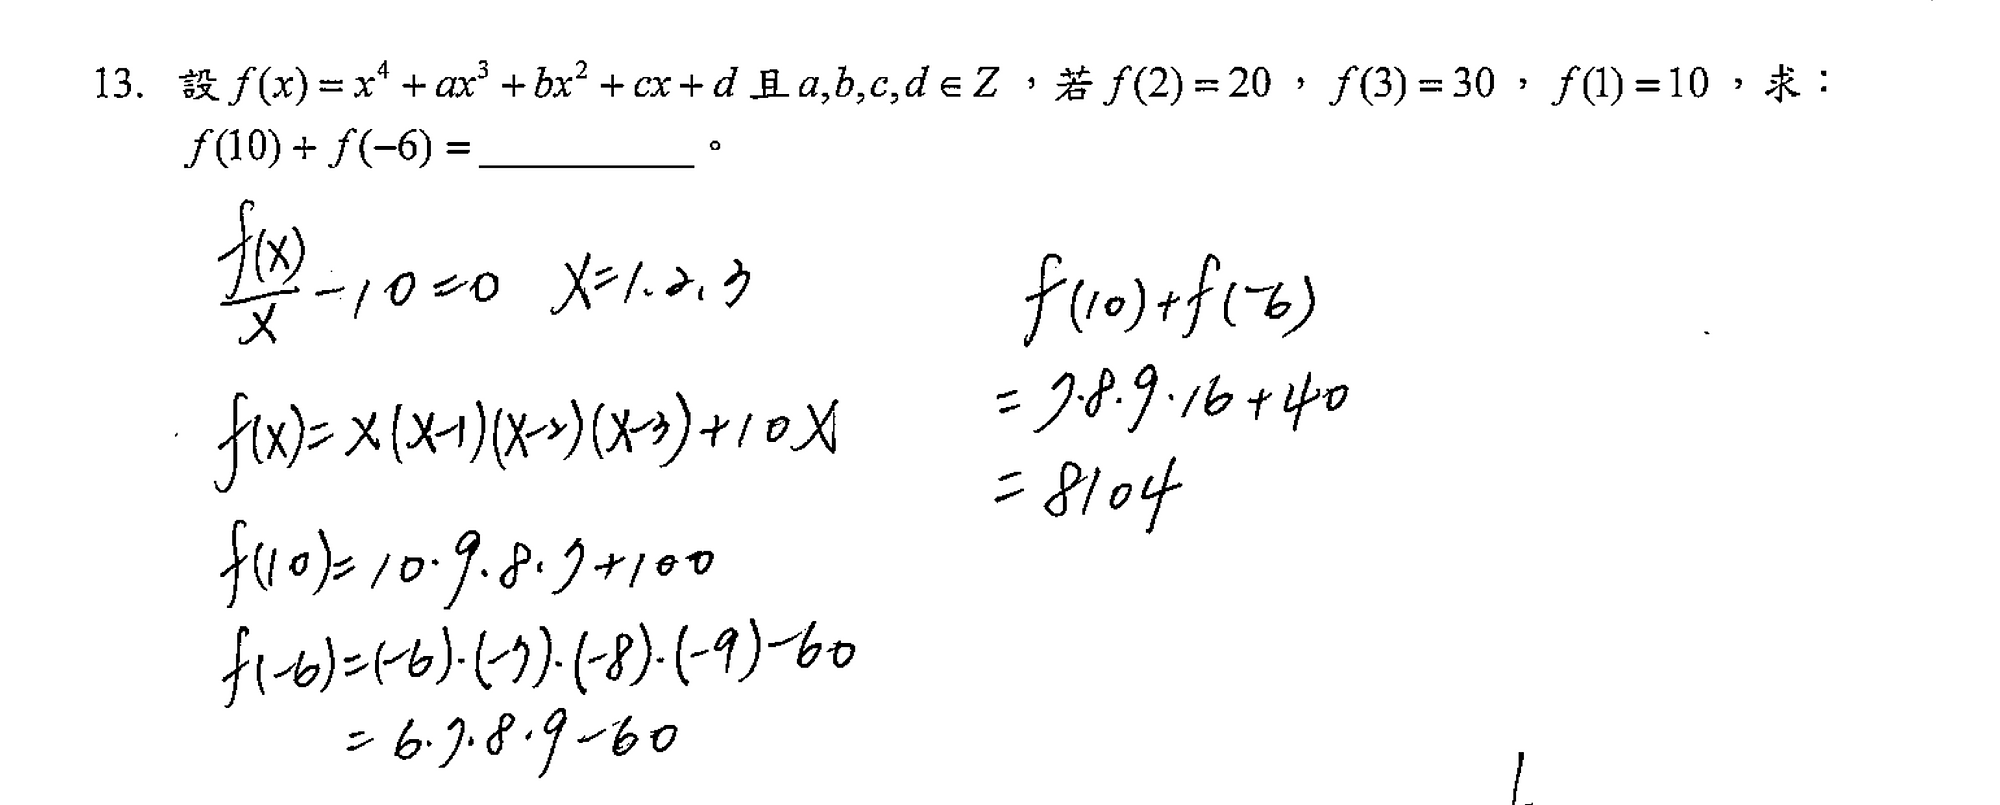 13. 設 f(x) = x⁴ + ax³ + bx² + cx + d 且 a,b,c,d ∈ Z ，若 f(2) = 20 ， f(3) = 30 ， f(1) = 10 ，求：
f(10) + f(−6) = ________ 。
f(x)/x − 10 = 0  x = 1.2.3
f(x) = x(x-1)(x-2)(x-3) + 10x
f(10) = 10·9·8·7 + 100
f(-6) = (-6)·(-7)·(-8)·(-9) − 60
= 6·7·8·9 − 60
f(10) + f(-6)
= 7·8·9·16 + 40
= 8104